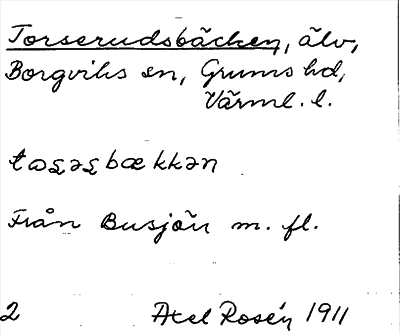 Torserudsbäcken, älv,
Borgviks sn, Grums hd,
Värml. l.
Från Busjön m. fl.
2 Axel Rosén 1911